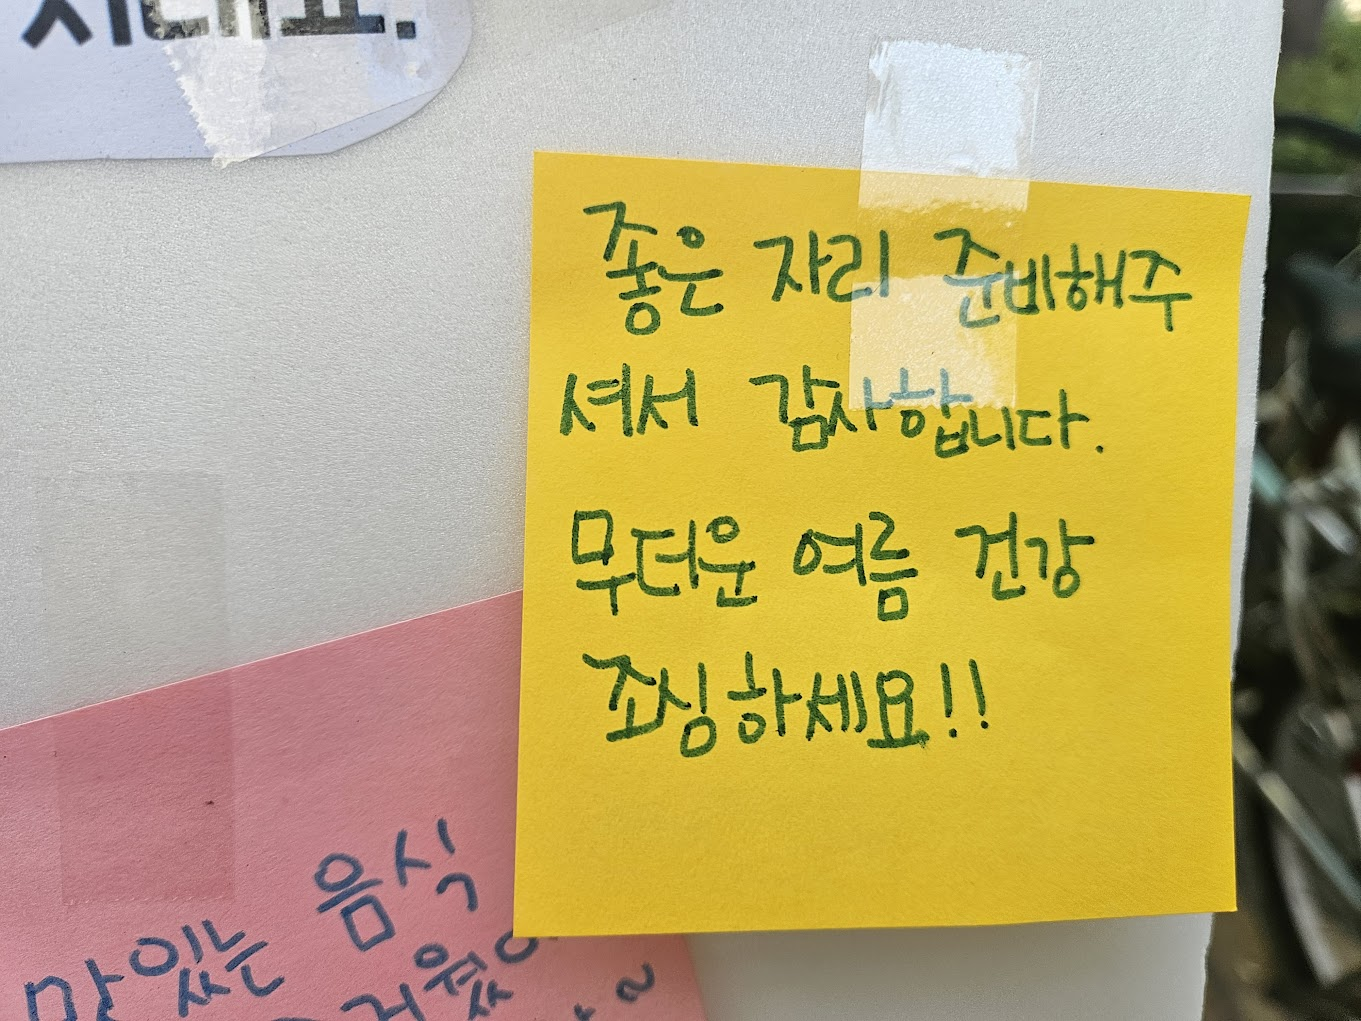 좋은 자리 준비해주
셔서 감사합니다.
무더운 여름 건강
조심하세요!!
맛있는 음식